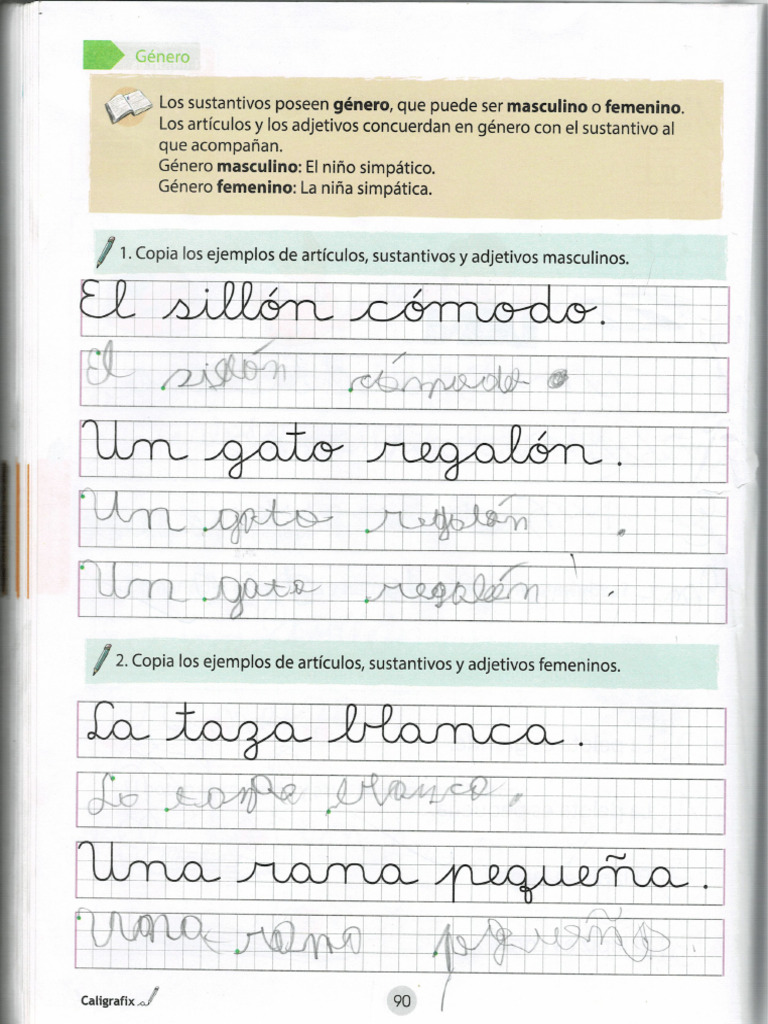 Género
Los sustantivos poseen género, que puede ser masculino o femenino.
Los artículos y los adjetivos concuerdan en género con el sustantivo al
que acompañan.
Género masculino: El niño simpático.
Género femenino: La niña simpática.
1. Copia los ejemplos de artículos, sustantivos y adjetivos masculinos.
El sillón cómodo.
El sillón cómodo.
Un gato regalón.
Un gato regalón.
Un gato regalón.
2. Copia los ejemplos de artículos, sustantivos y adjetivos femeninos.
La taza blanca.
La blanca.
Una rana pequeña.
Una rana pequeña.
Caligrafix
90